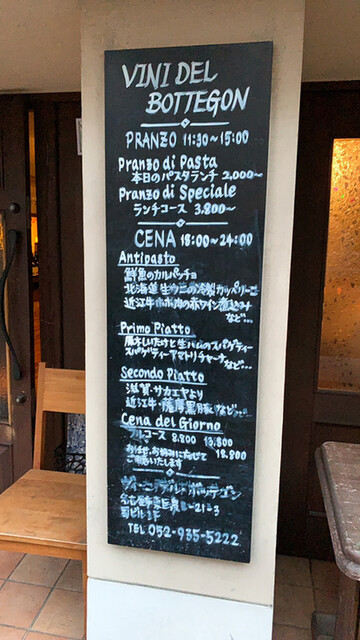 VINI DEL
BOTTEGON
PRANZO 11:30~15:00
Pranzo di Pasta
本日のパスタランチ 2,000~
Pranzo di Speciale
ランチコース 3,800~
CENA 18:00~24:00
Antipasto
鮮魚のカルパッチョ
北海道 生ウニの冷製カッペリーニ
近江牛ホホ肉の赤ワイン煮込み
など…
Primo Piatto
原木しいたけと生ハムのスパゲティー
スパゲティーアマトリチャーナ など…
Secondo Piatto
滋賀・サカエヤより
近江牛・薩摩黒豚 など…
Cena del Giorno
フルコース 8.800 13.800
18.800
お任せ、お好みに応じて
ご用意いたします
ヴィーニ デル ボッテゴン
名古屋市東区泉 -21-3
ビル1F
TEL 052-935-5222